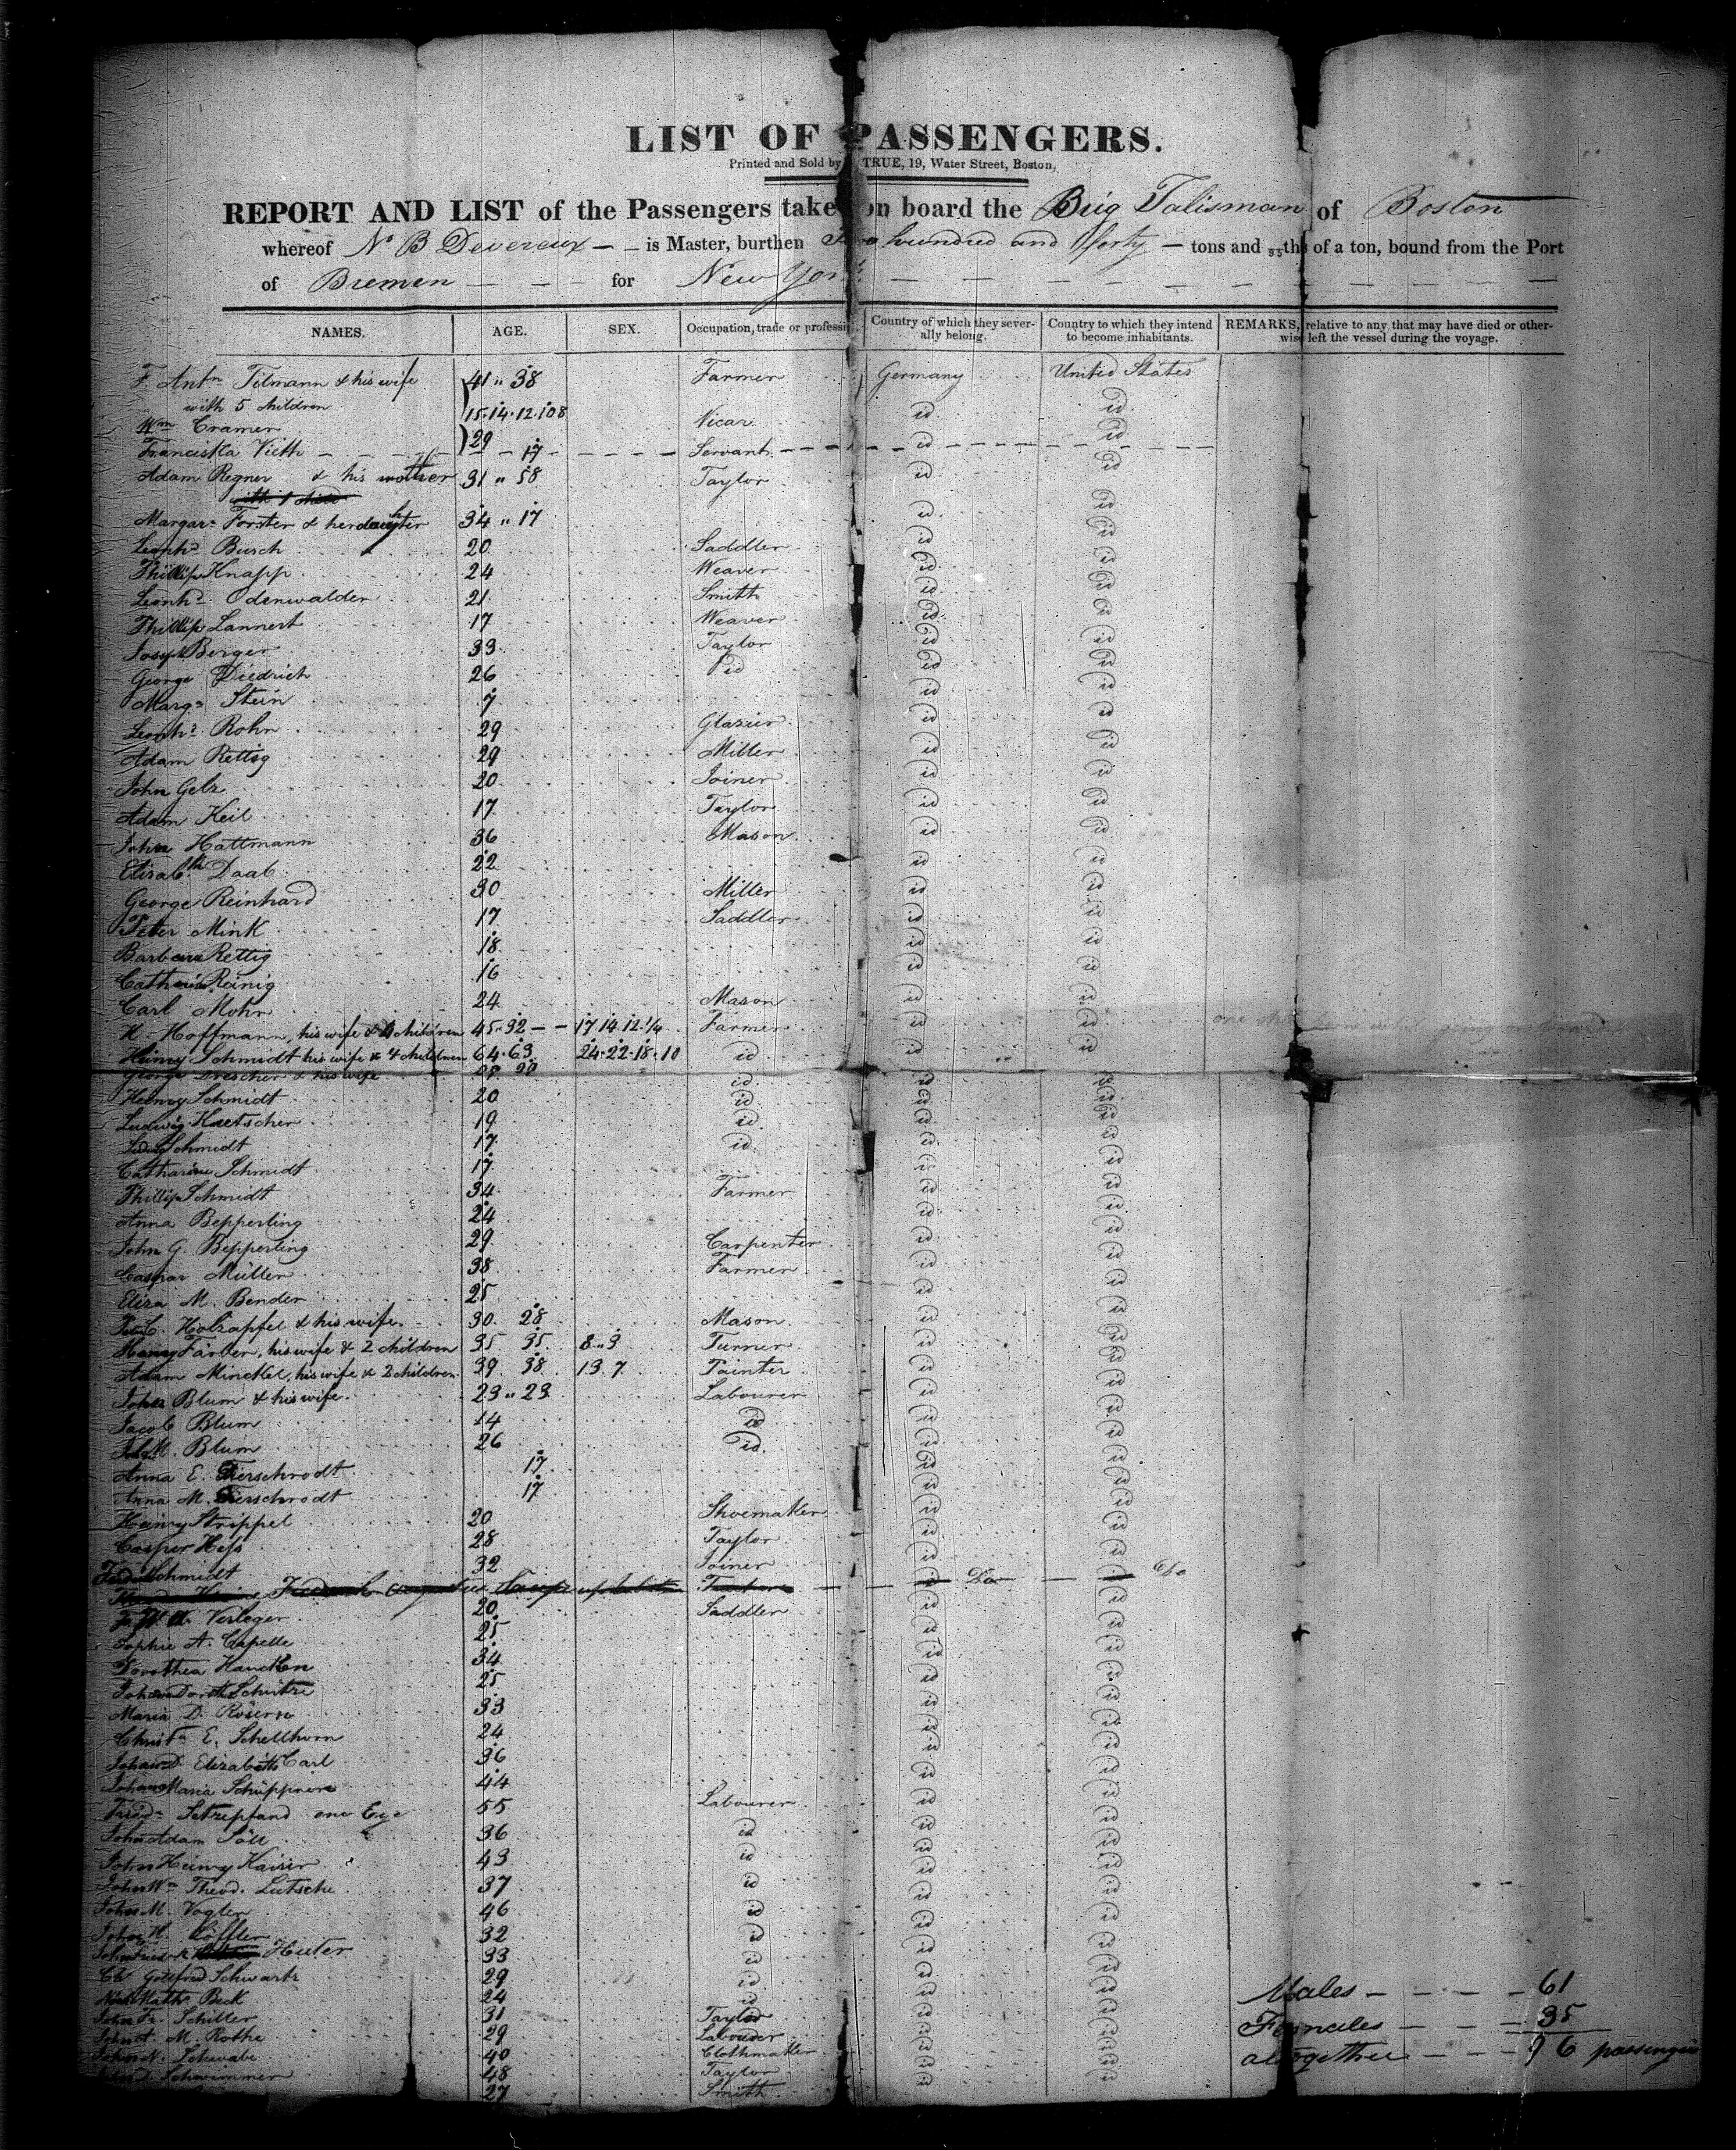 LIST OF PASSENGERS.
Printed and Sold by TRUE, 19, Water Street, Boston,
REPORT AND LIST of the Passengers taken on board the Brig Talisman of Boston
whereof N. B Devereux is Master, burthen Two hundred and forty tons and ths of a ton, bound from the Port
of Bremen for New York
NAMES. AGE. SEX. Occupation, trade or profession. Country of which they severally belong. Country to which they intend to become inhabitants. REMARKS, relative to any that may have died or otherwise left the vessel during the voyage.
F. Antn Tilmann & his wife 41 " 38 Farmer Germany United States
with 5 children 15.14.12.10 8 id id
Wm Cramer 29 Vicar id
Franciska Vieth 17 Servant id id
Adam Regner & his mother 31 " 58 Taylor id id
Margar. Forster & her daughter 34 " 17 id id
Leonhd Busch 20 Saddler id id
Phillip Knapp 24 Weaver id id
Leonhd Odenwalder 21 Smith id id
Phillip Lannert 17 Weaver id id
Joseph Berger 33 Taylor id id
George Diedrich 26 id id id
Marga Stein 7 id id
Leonhd Rohn 29 Glazier id id
Adam Rettig 29 Miller id id
John Gelz 20 Joiner id id
Adam Keil 17 Taylor id id
John Hattmann 36 Mason id id
Elisabth Daab 22 id id
George Reinhard 30 Miller id id
Peter Mink 17 Saddler id id
Barbara Rettig 18 id id
Reinig 16 id id
Carl Mohr 24 Mason id id
H. Hoffmann, his wife & 4 children 45.32 17 14 12 1/4 Farmer id id
Henry Schmidt his wife & 4 children 64.63 24.22.18.10 id id id
George Drescher & his wife id id id
Henry Schmidt 20 id id id
Ludwig Kaetscher 19 id id id
Schmidt 17 id id id
Catharine Schmidt 17 id id
Phillip Schmidt 34 Farmer id id
Anna Bepperling 24 id id
John G. Bepperling 29 Carpenter id id
Caspar Müller 38 Farmer id id
Eliza M. Bender 25 id id
Holzapfel & his wife 30 28 Mason id id
Henry Färber, his wife & 2 children 35 35 8 " 3 Turner id id
Adam Minckel, his wife & 2 children 39 38 13 7 Painter id id
John Blum & his wife 23 " 23 Labourer id id
Jacob Blum 14 id id id
John M. Blum 26 id id id
Anna E. Fierschrodt 17 id id
Anna M. Fierschrodt 17 id id
Henry Strippel 20 Shoemaker id id
Casper Hess 28 Taylor id id
Schmidt 32 Joiner id id
Verleger 20 Saddler id id
Sophie A. Capelle 25 id id
Dorothea Haucken 34 id id
Schütze 25 id id
Maria D. Rösern 33 id id
Christn E. Schellhorn 24 id id
Elizabeth Carl 36 id id
Maria Schüppner 44 id id
Friedr. Setzepfand one Eye 55 Labourer id id
John Adam Söll 36 id id id
John Henry Kaiser 43 id id id
John Wm Theod. Lutsche 37 id id id
John M. Vogler 46 id id id
John H. Löffler 32 id id id
Huter 33 id id id
Ch. Gottfried Schwartz 29 id id id
Beck 24 id id id
John Fr. Schiller 31 Taylor id id
M. Rothe 29 Labourer id id
John N. Schwabe 40 Clothmaker id id
Schwimmer 48 Taylor id id
27 Smith id id
Males 61
Females 35
altogether 96 passengers